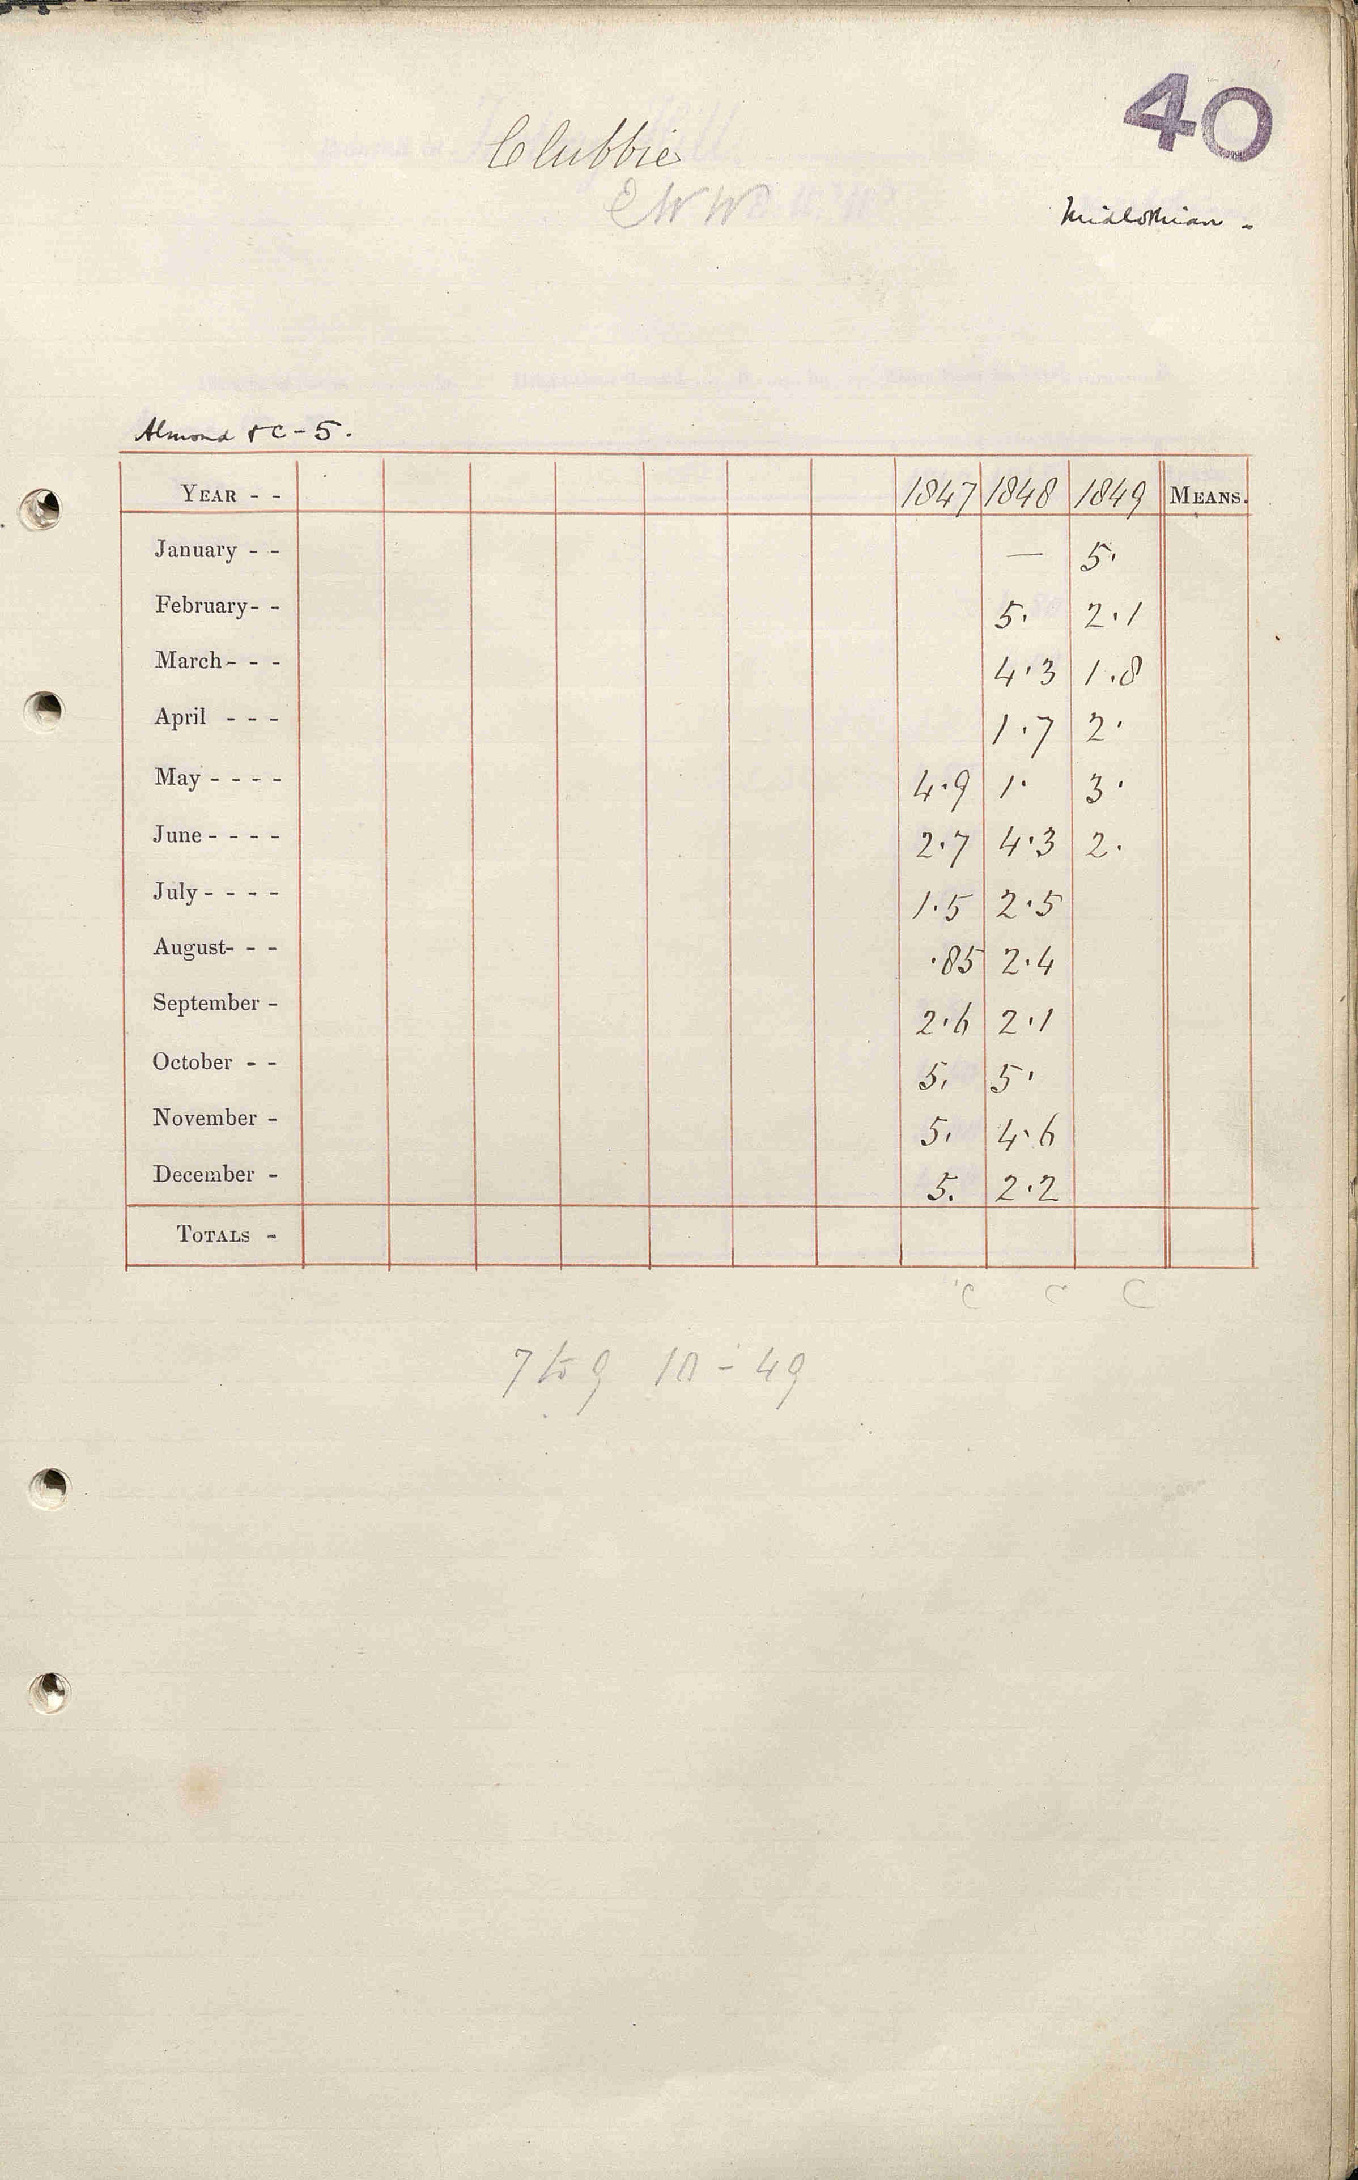 40
Clubbie
EWW
Midlothian -
Almond &c - 5.
YEAR - - 1847 1848 1849 MEANS.
January - - — 5.
February- - 5. 2.1
March- - - 4.3 1.8
April - - - 1.7 2.
May - - - - 4.9 1. 3.
June - - - - 2.7 4.3 2.
July - - - - 1.5 2.5
August- - - .85 2.4
September - 2.6 2.1
October - - 5. 5.
November - 5. 4.6
December - 5. 2.2
TOTALS -
C C C
7 to 9 18 - 49